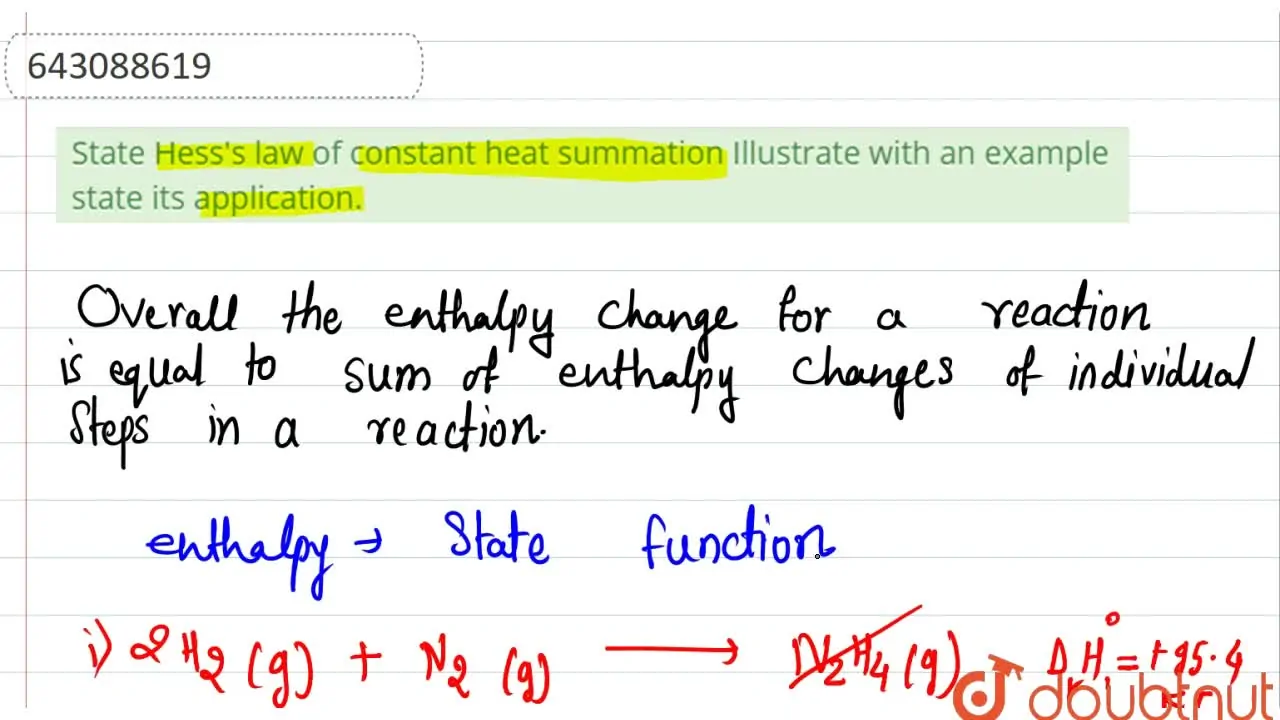 643088619
State Hess's law of constant heat summation Illustrate with an example
state its application.
Overall the enthalpy change for a reaction
is equal to sum of enthalpy changes of individual
Steps in a reaction.
enthalpy → State function
i) 2H₂ (g) + N₂ (g) ⟶ N₂H₄ (g) ΔᵣH°₁ = +95.4
doubtnut